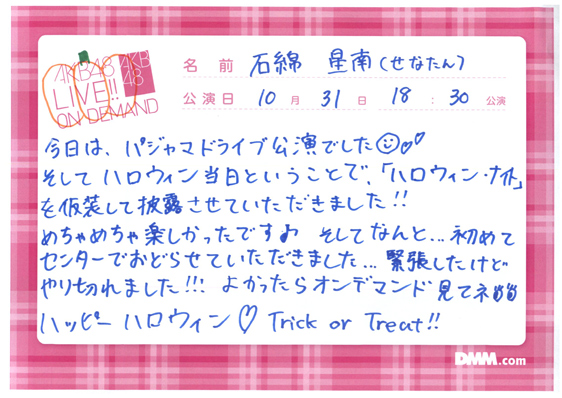 AKB48
LIVE!!
ON DEMAND
AKB
48
名前 石綿 星南(せなたん)
公演日 10月31日 18:30公演
今日は、パジャマドライブ公演でした
そしてハロウィン当日ということで、「ハロウィン・ナイト」
を仮装して披露させていただきました!!
めちゃめちゃ楽しかったです♪ そしてなんと...初めて
センターでおどらせていただきました...緊張したけど
やり切れました!!! よかったらオンデマンド見てネ
ハッピーハロウィン♡ Trick or Treat!!
DMM.com